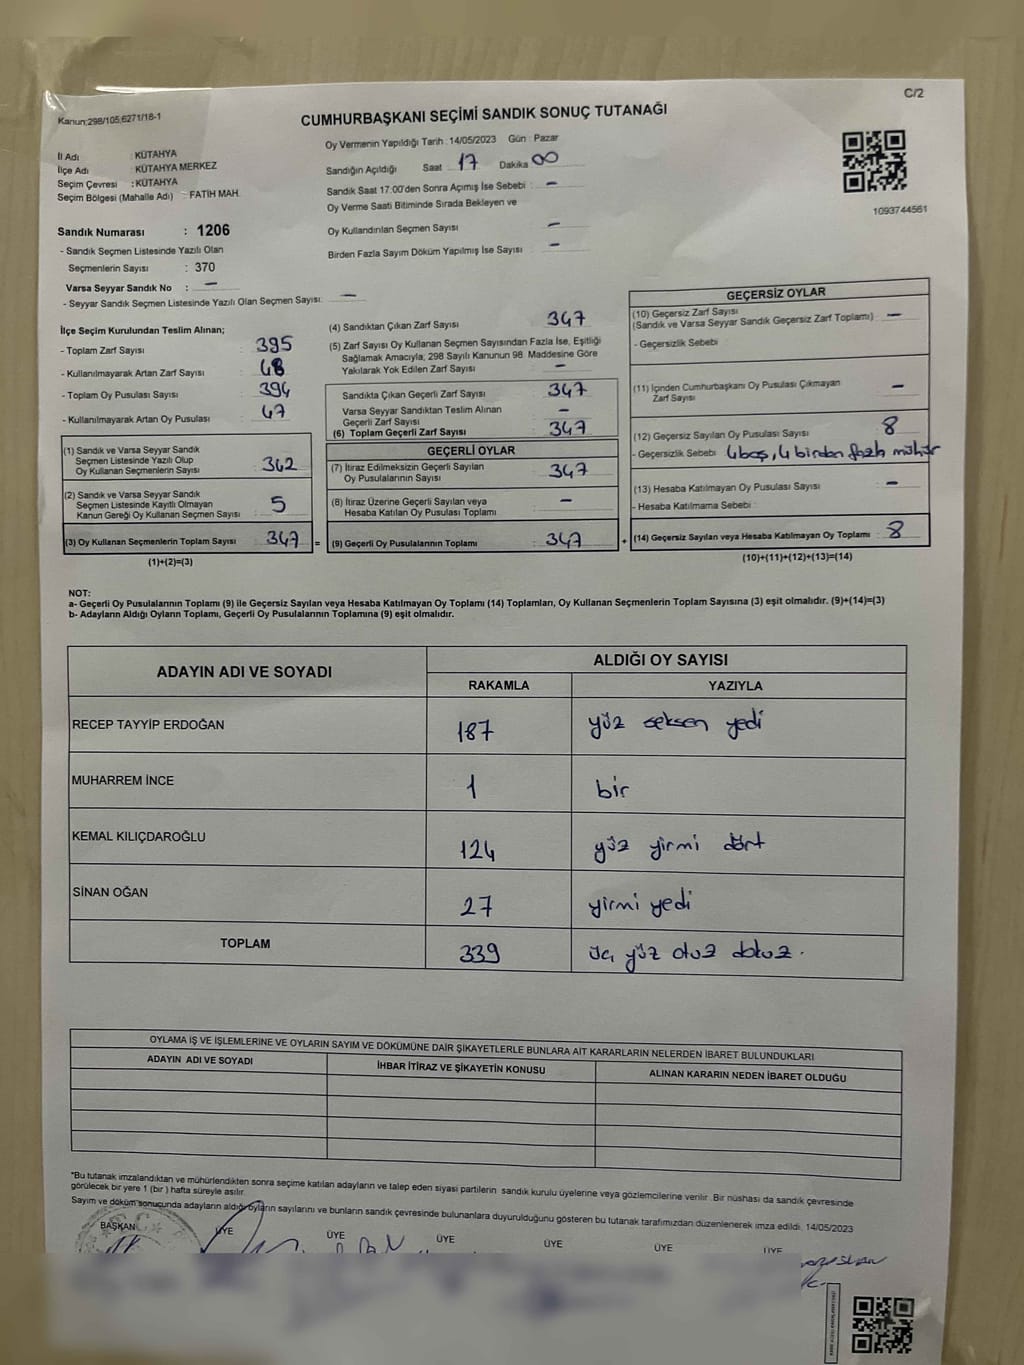 C/2
Kanun:298/105,6271/18-1
CUMHURBAŞKANI SEÇİMİ SANDIK SONUÇ TUTANAĞI
İl Adı : KÜTAHYA
İlçe Adı : KÜTAHYA MERKEZ
Seçim Çevresi : KÜTAHYA
Seçim Bölgesi (Mahalle Adı) : FATİH MAH.
Sandık Numarası : 1206
- Sandık Seçmen Listesinde Yazılı Olan
Seçmenlerin Sayısı : 370
Varsa Seyyar Sandık No : –
- Seyyar Sandık Seçmen Listesinde Yazılı Olan Seçmen Sayısı: –
Oy Vermenin Yapıldığı Tarih : 14/05/2023 Gün : Pazar
Sandığın Açıldığı Saat 17 Dakika 00
Sandık Saat 17:00'den Sonra Açımış İse Sebebi : –
Oy Verme Saati Bitiminde Sırada Bekleyen ve
Oy Kullandırılan Seçmen Sayısı –
Birden Fazla Sayım Döküm Yapılmış İse Sayısı –
1093744561
İlçe Seçim Kurulundan Teslim Alınan;
- Toplam Zarf Sayısı : 395
- Kullanılmayarak Artan Zarf Sayısı : 48
- Toplam Oy Pusulası Sayısı : 394
- Kullanılmayarak Artan Oy Pusulası : 47
(1) Sandık ve Varsa Seyyar Sandık
Seçmen Listesinde Yazılı Olup
Oy Kullanan Seçmenlerin Sayısı : 342
(2) Sandık ve Varsa Seyyar Sandık
Seçmen Listesinde Kayıtlı Olmayan
Kanun Gereği Oy Kullanan Seçmen Sayısı : 5
(3) Oy Kullanan Seçmenlerin Toplam Sayısı : 347 =
(1)+(2)=(3)
(4) Sandıktan Çıkan Zarf Sayısı : 347
(5) Zarf Sayısı Oy Kullanan Seçmen Sayısından Fazla İse, Eşitliği
Sağlamak Amacıyla; 298 Sayılı Kanunun 98. Maddesine Göre
Yakılarak Yok Edilen Zarf Sayısı : –
Sandıkta Çıkan Geçerli Zarf Sayısı : 347
Varsa Seyyar Sandıktan Teslim Alınan
Geçerli Zarf Sayısı : –
(6) Toplam Geçerli Zarf Sayısı : 347
GEÇERLİ OYLAR
(7) İtiraz Edilmeksizin Geçerli Sayılan
Oy Pusulalarının Sayısı : 347
(8) İtiraz Üzerine Geçerli Sayılan veya
Hesaba Katılan Oy Pusulası Toplamı : –
(9) Geçerli Oy Pusulalarının Toplamı : 347 +
GEÇERSİZ OYLAR
(10) Geçersiz Zarf Sayısı
(Sandık ve Varsa Seyyar Sandık Geçersiz Zarf Toplamı) : –
- Geçersizlik Sebebi :
(11) İçinden Cumhurbaşkanı Oy Pusulası Çıkmayan
Zarf Sayısı : –
(12) Geçersiz Sayılan Oy Pusulası Sayısı : 8
- Geçersizlik Sebebi : 4 boş, 4 birden fazla mühür
(13) Hesaba Katılmayan Oy Pusulası Sayısı : –
- Hesaba Katılmama Sebebi :
(14) Geçersiz Sayılan veya Hesaba Katılmayan Oy Toplamı : 8
(10)+(11)+(12)+(13)=(14)
NOT:
a- Geçerli Oy Pusulalarının Toplamı (9) ile Geçersiz Sayılan veya Hesaba Katılmayan Oy Toplamı (14) Toplamları, Oy Kullanan Seçmenlerin Toplam Sayısına (3) eşit olmalıdır. (9)+(14)=(3)
b- Adayların Aldığı Oyların Toplamı, Geçerli Oy Pusulalarının Toplamına (9) eşit olmalıdır.
ADAYIN ADI VE SOYADI ALDIĞI OY SAYISI
RAKAMLA YAZIYLA
RECEP TAYYİP ERDOĞAN 187 yüz seksen yedi
MUHARREM İNCE 1 bir
KEMAL KILIÇDAROĞLU 124 yüz yirmi dört
SİNAN OĞAN 27 yirmi yedi
TOPLAM 339 üç yüz otuz dokuz.
OYLAMA İŞ VE İŞLEMLERİNE VE OYLARIN SAYIM VE DÖKÜMÜNE DAİR ŞİKAYETLERLE BUNLARA AİT KARARLARIN NELERDEN İBARET BULUNDUKLARI
ADAYIN ADI VE SOYADI İHBAR İTİRAZ VE ŞİKAYETİN KONUSU ALINAN KARARIN NEDEN İBARET OLDUĞU
*Bu tutanak imzalandıktan ve mühürlendikten sonra seçime katılan adayların ve talep eden siyasi partilerin sandık kurulu üyelerine veya gözlemcilerine verilir. Bir nüshası da sandık çevresinde
görülecek bir yere 1 (bir) hafta süreyle asılır.
Sayım ve döküm sonucunda adayların aldığı oyların sayılarını ve bunların sandık çevresinde bulunanlara duyurulduğunu gösteren bu tutanak tarafımızdan düzenlenerek imza edildi. 14/05/2023
BAŞKAN ÜYE ÜYE ÜYE ÜYE ÜYE ÜYE